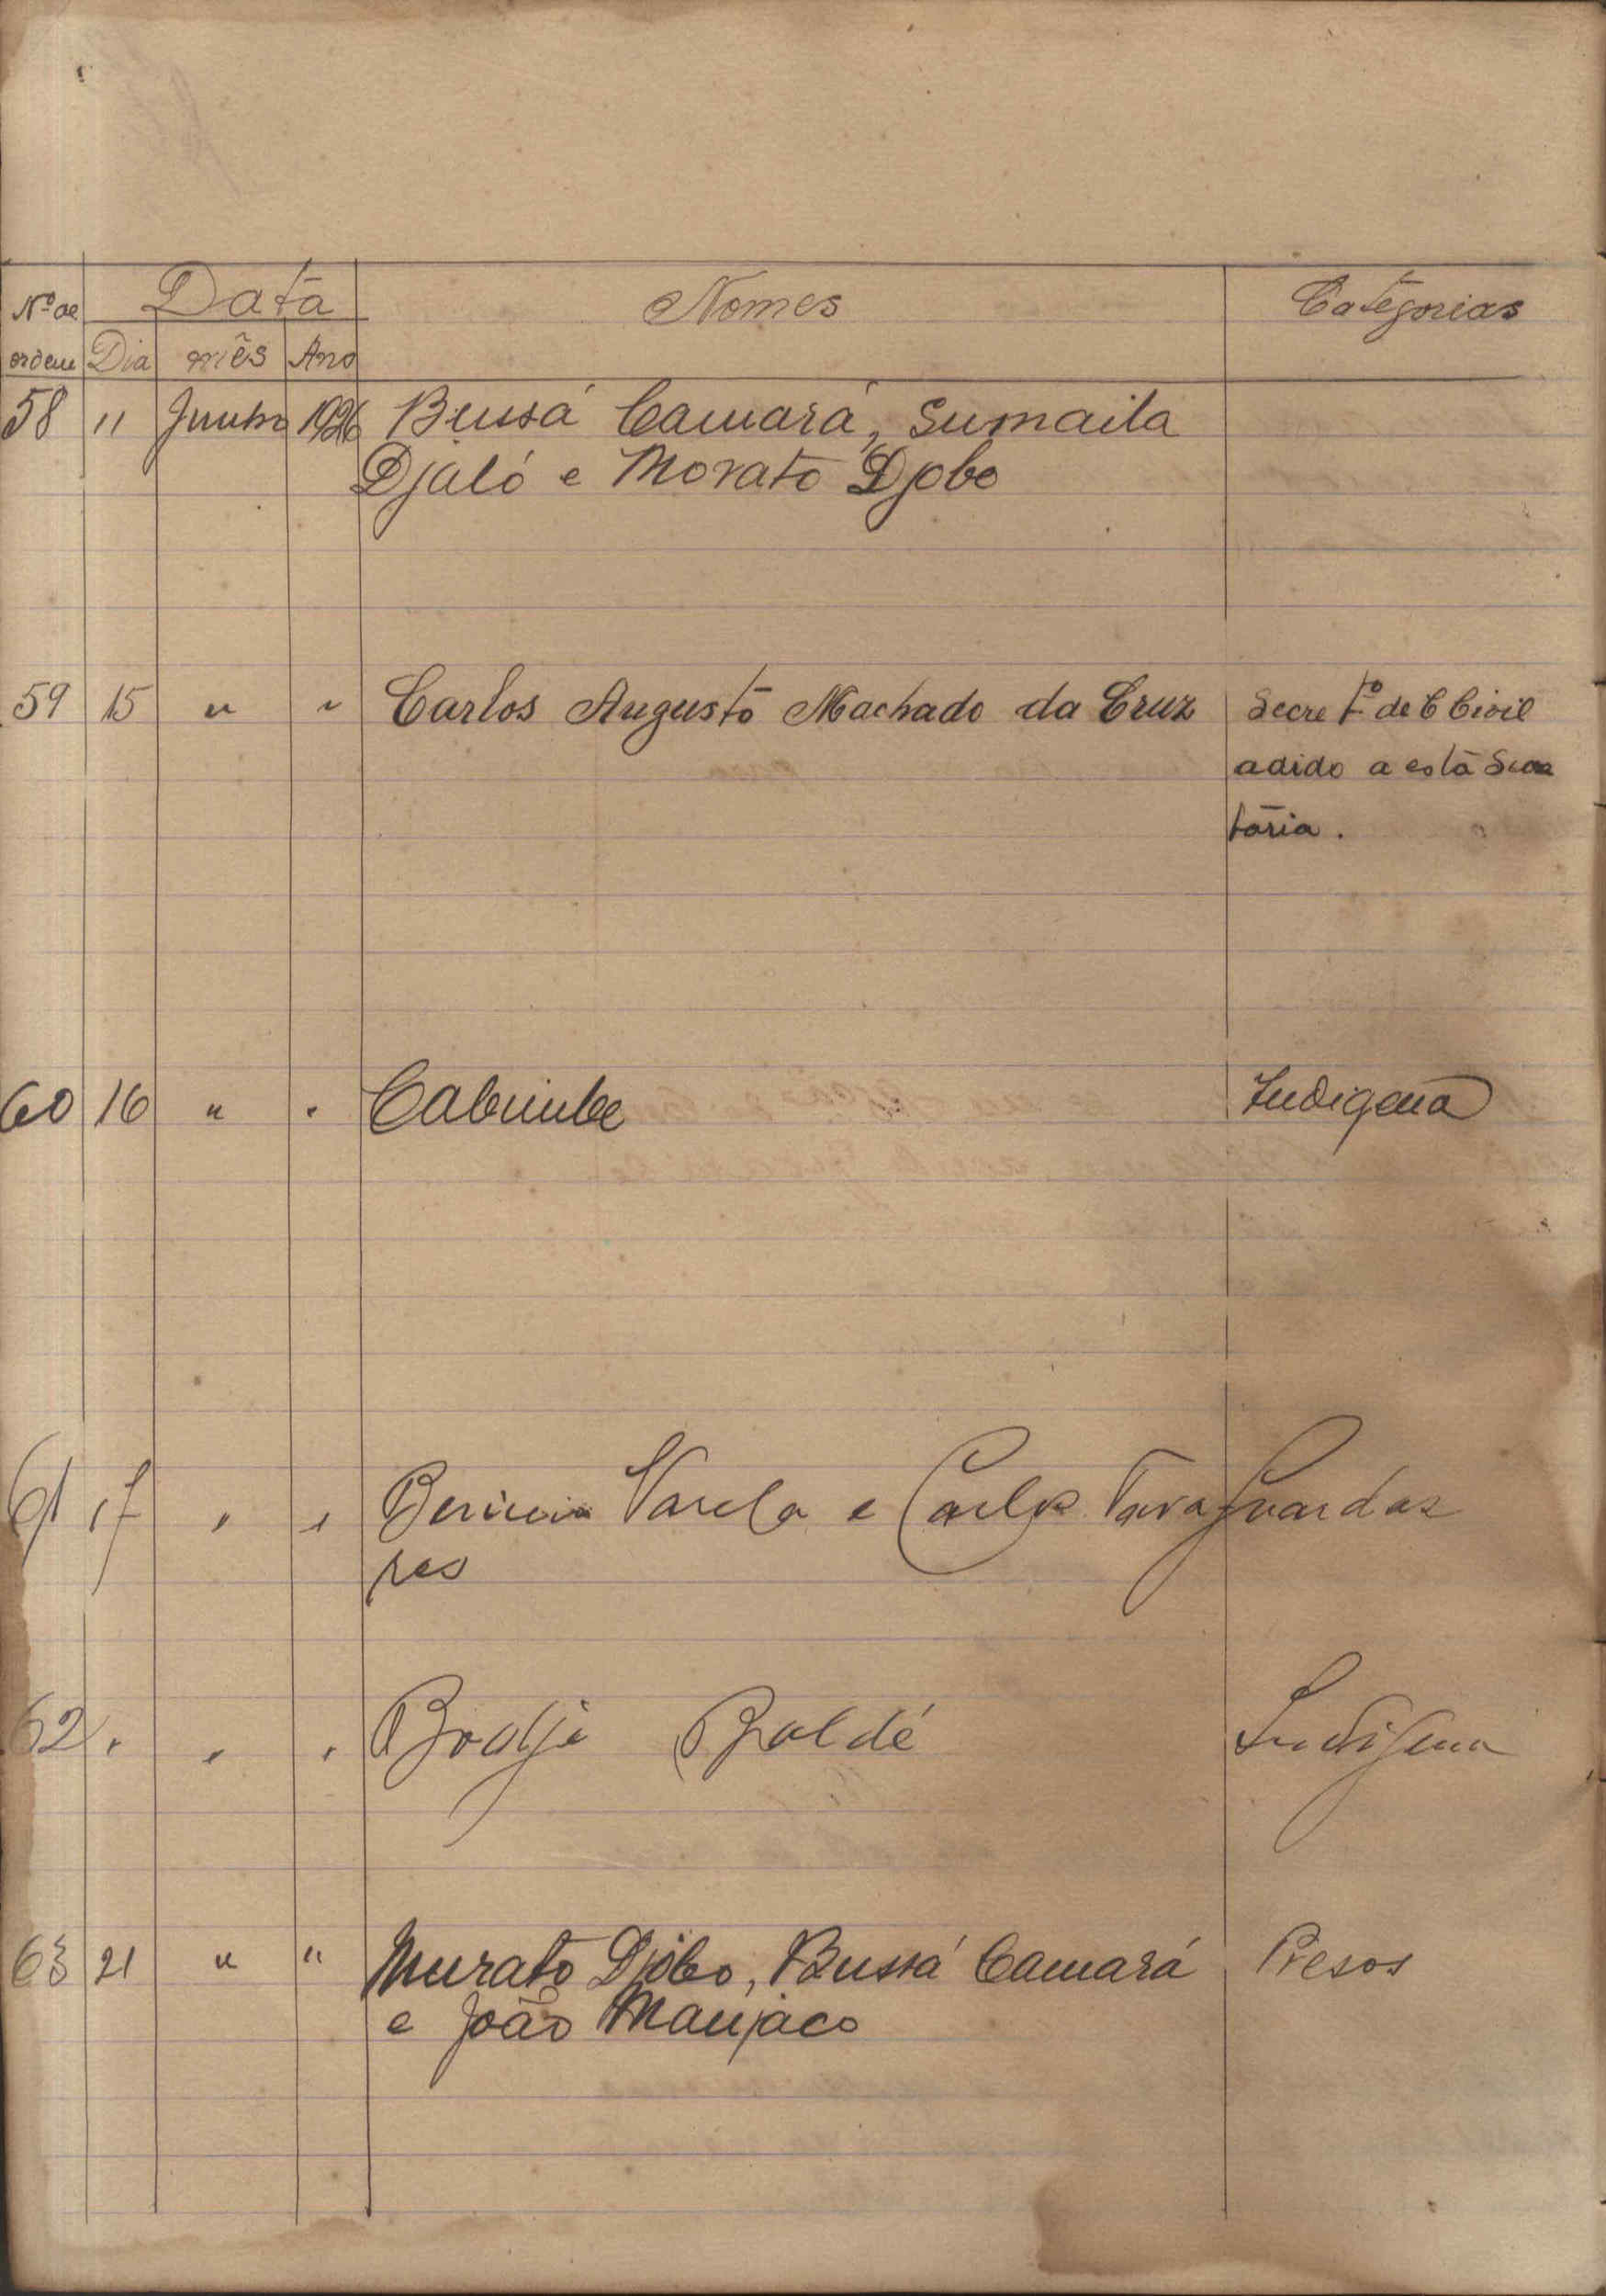 Nº de Data Nomes Categorias
ordem Dia mês Ano
58 11 Junho 1926 Bussá Camará, Sumaila
Djaló e Morato Djobo
59 15 " " Carlos Augusto Machado da Cruz Secret.º de C Civil
adido a esta Secre
taria.
60 16 " " Indigena
61 17 " " Varela e Carlos Tava Guardas
res
62 " " " Baldé Indigena
63 21 " " Murato Djobo, Bussá Camará Presos
e João Manjaco